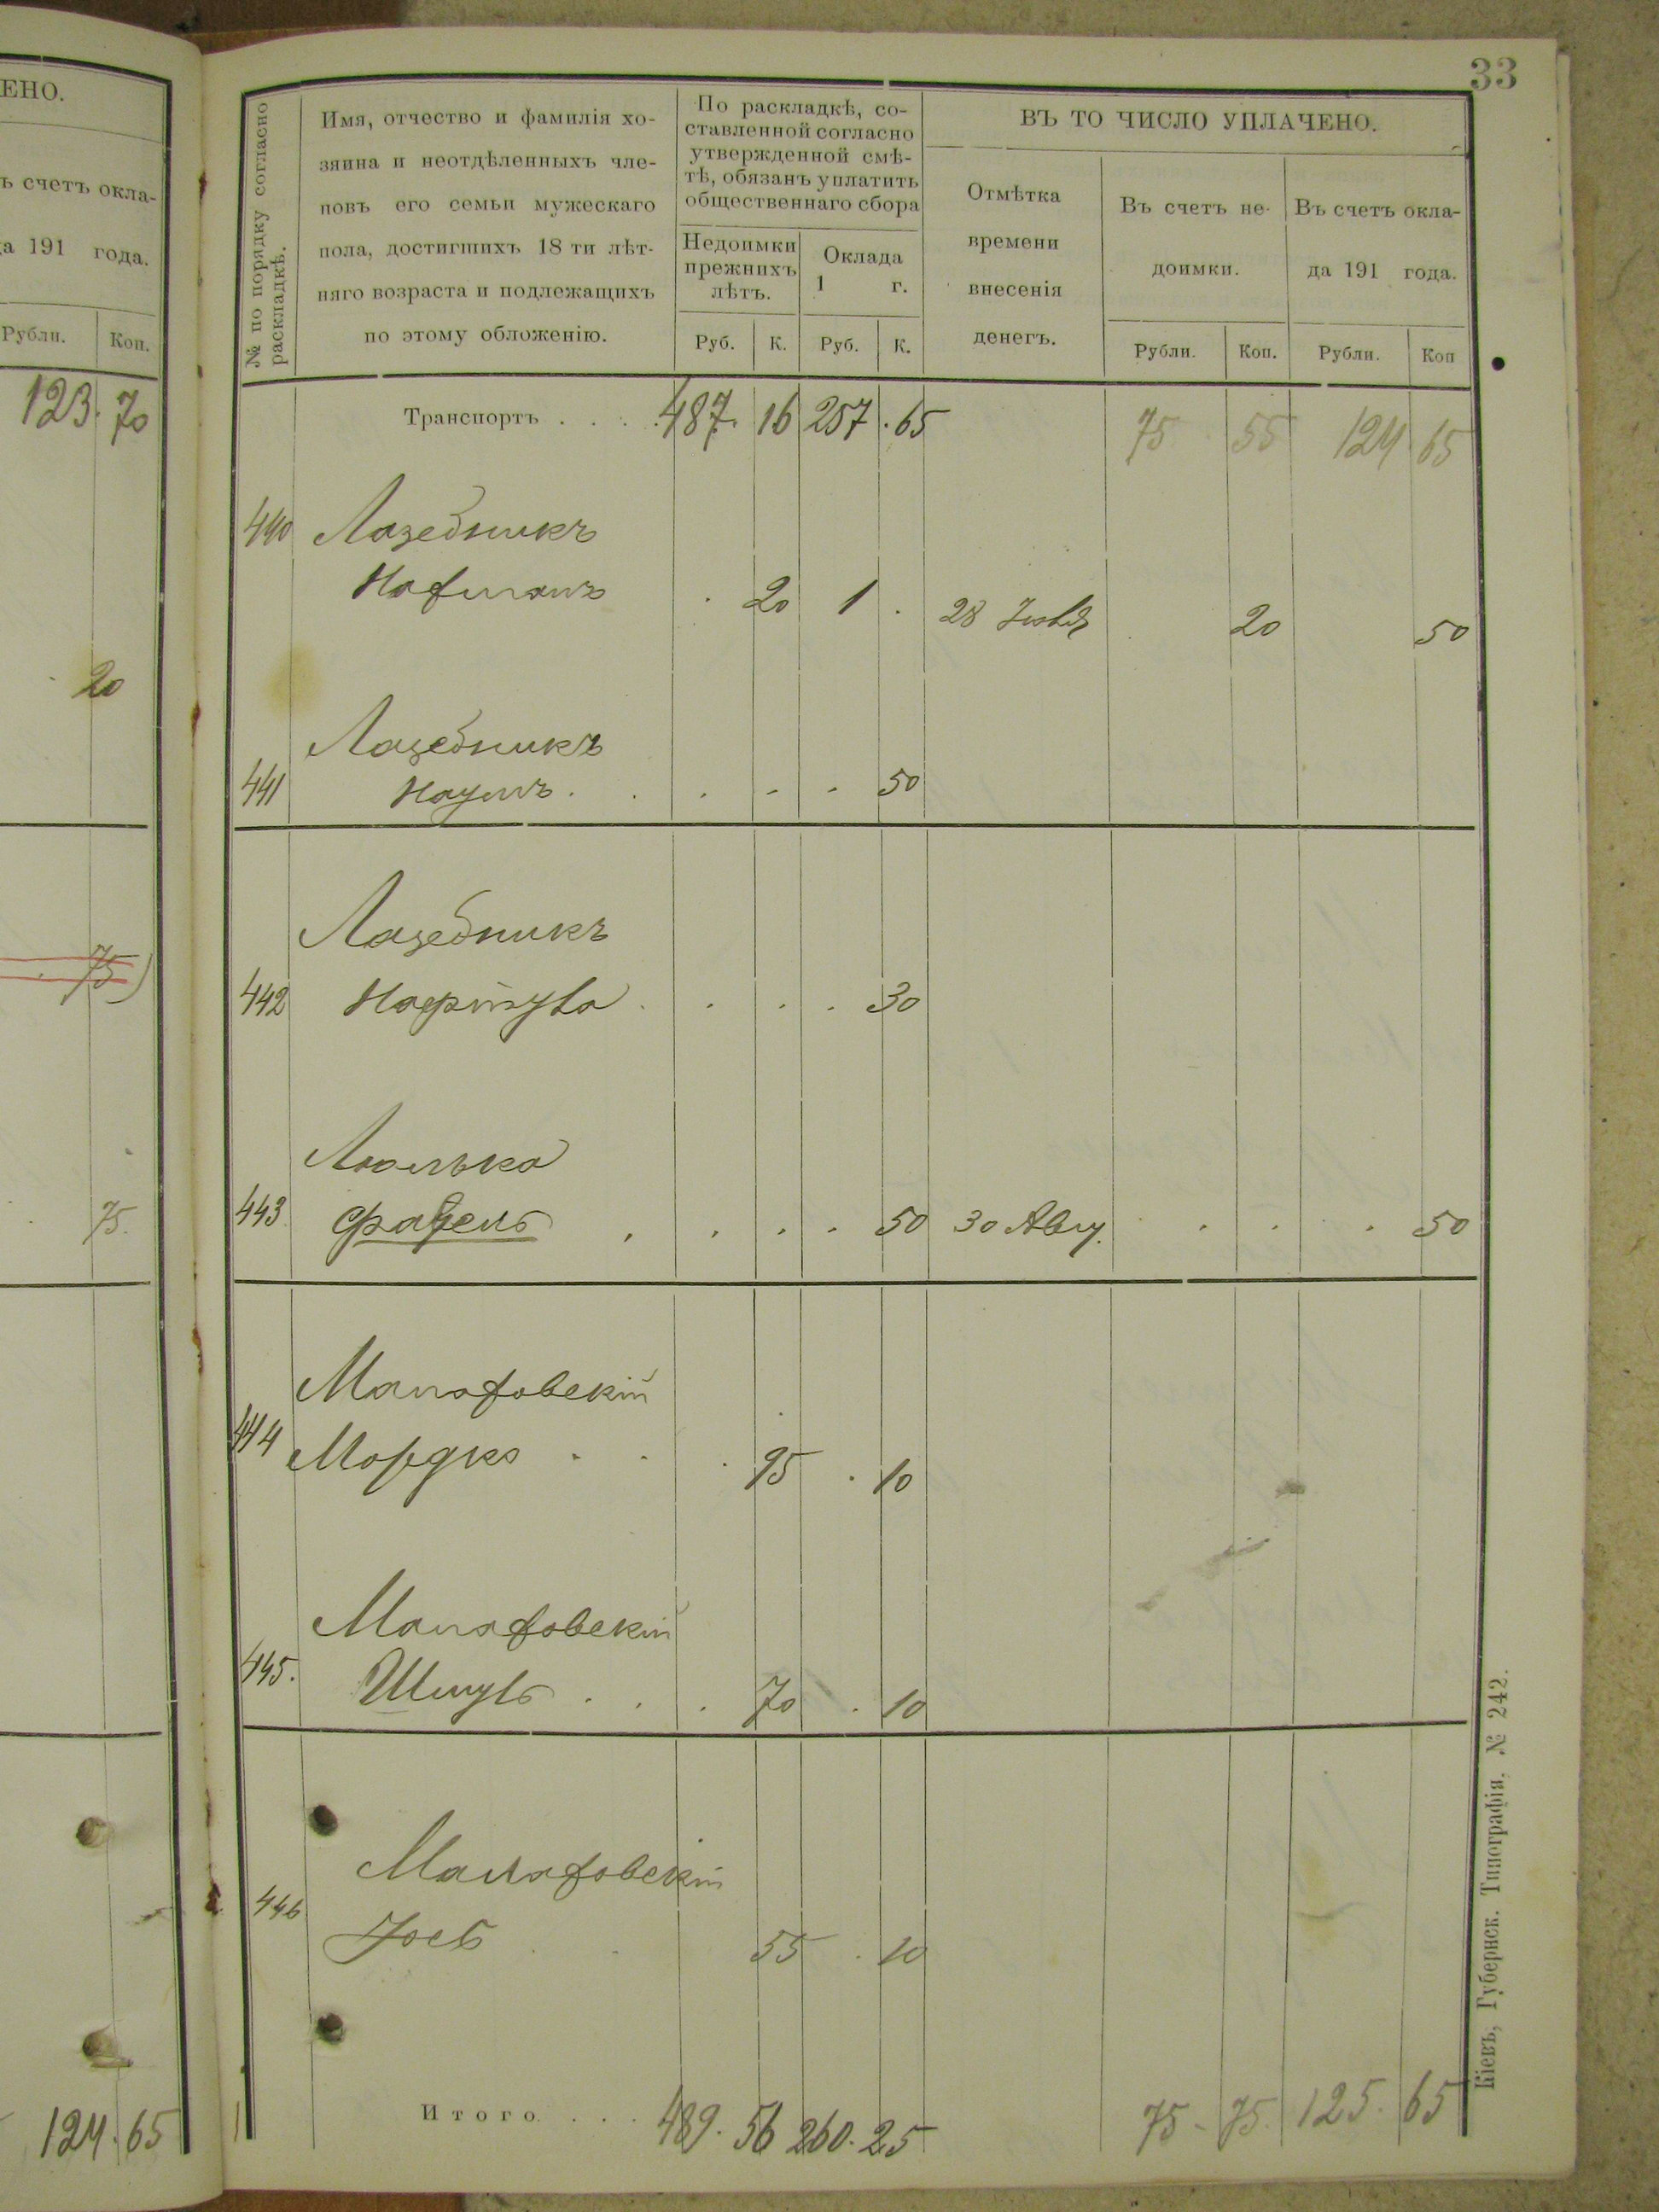 ЕНО.
ъ счетъ окла-
а 191 года.
Рубли. Коп.
123. 70
20
75
75.
124. 65
33
№ по порядку согласно
раскладкѣ.
Имя, отчество и фамилія хо-
зяина и неотдѣленныхъ чле-
новъ его семьи мужескаго
пола, достигшихъ 18 ти лѣт-
няго возраста и подлежащихъ
по этому обложенію.
По раскладкѣ, со-
ставленной согласно
утвержденной смѣ-
тѣ, обязанъ уплатить
общественнаго сбора
Недоимки
прежнихъ
лѣтъ.
Оклада
1 г.
Руб. К. Руб. К.
ВЪ ТО ЧИСЛО УПЛАЧЕНО.
Отмѣтка
времени
внесенія
денегъ.
Въ счетъ не-
доимки.
Въ счетъ окла-
да 191 года.
Рубли. Коп. Рубли. Коп
Транспортъ . . . . 487. 16 257. 65 75 55 124 65
440 Лазебникъ
20 1 28 20 50
Лазебникъ
441 Наумъ . . . - . 50
Лазебникъ
442 Нафтула . . . . 30
Люлька
443 . . . . 50 30 Авгу. . . . . 50
Малаховскій
444 Мордко . . . 95 . 10
Малаховскій
445. Шмуль . . . 70 . 10
Малаховскій
446 Іось . . 55 . 10
Итого. . . . 489. 56 260. 25 75. 75. 125. 65
Кіевъ, Губернск. Типографія, № 242.